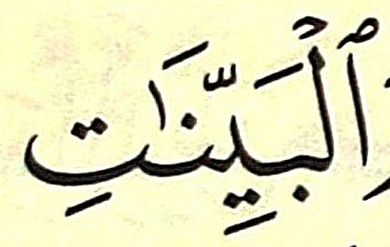 ٱلْبَيِّنَٰتِ